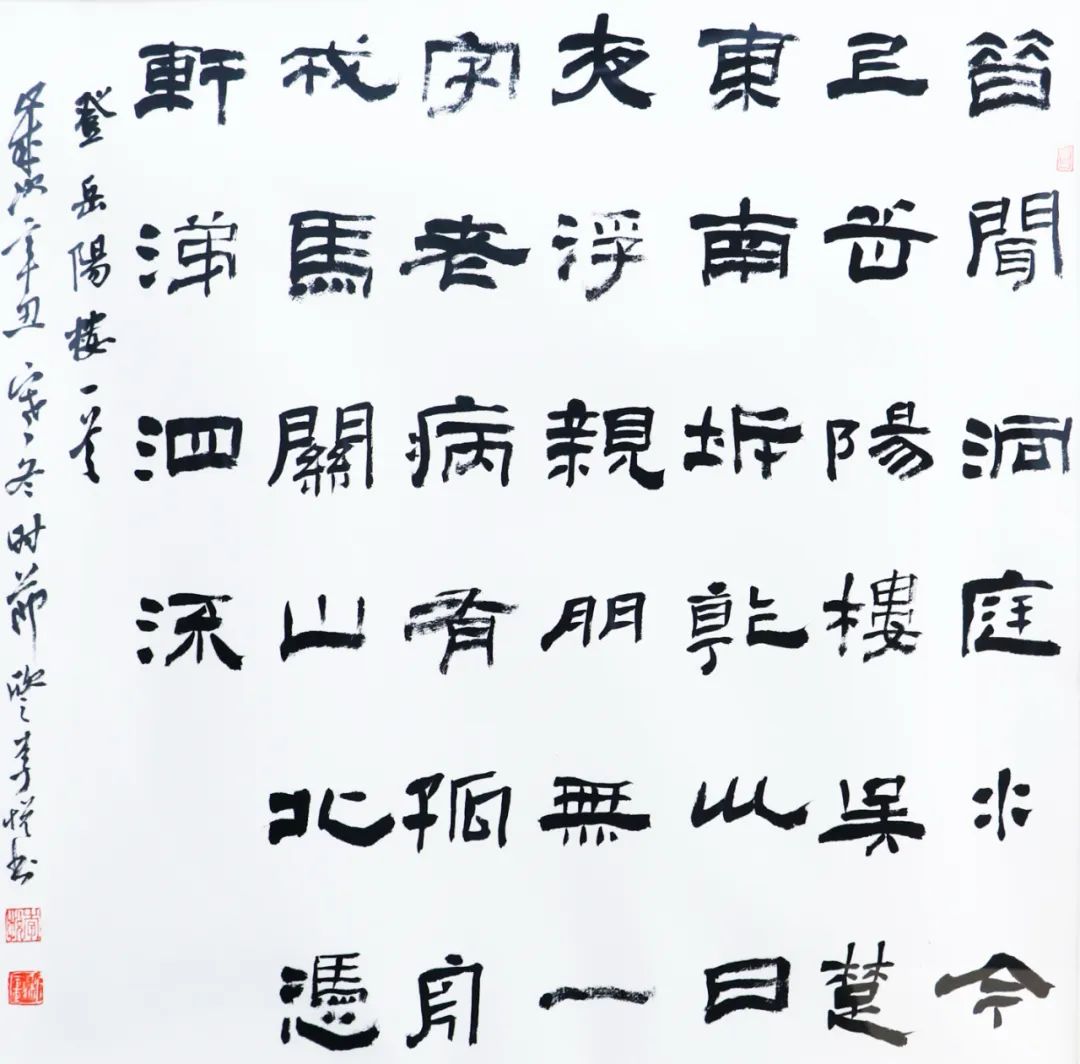 昔聞洞庭水今
上岳陽樓吳楚
東南坼乾坤日
夜浮親朋無一
字老病有孤舟
戎馬關山北憑
軒涕泗流
登岳陽樓一首
歲次辛丑寒冬时節李悦书